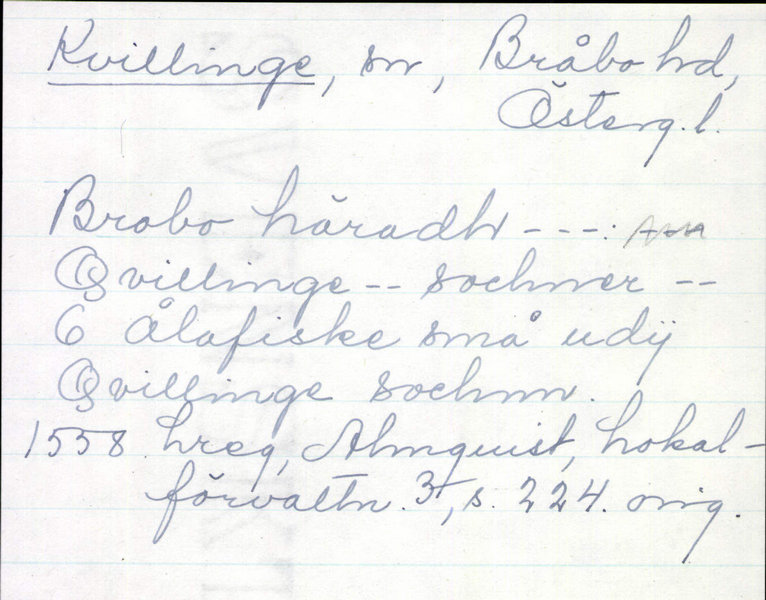 Kvillinge, sn, Bråbo hd,
Österg.l.
Brobo häradh ---:
Qvillinge -- sochner --
6 Ålafiske små udij
Qvillinge sochnn.
1558 hreg, Almquist, Lokal-
förvaltn. 3, s. 224. orig.